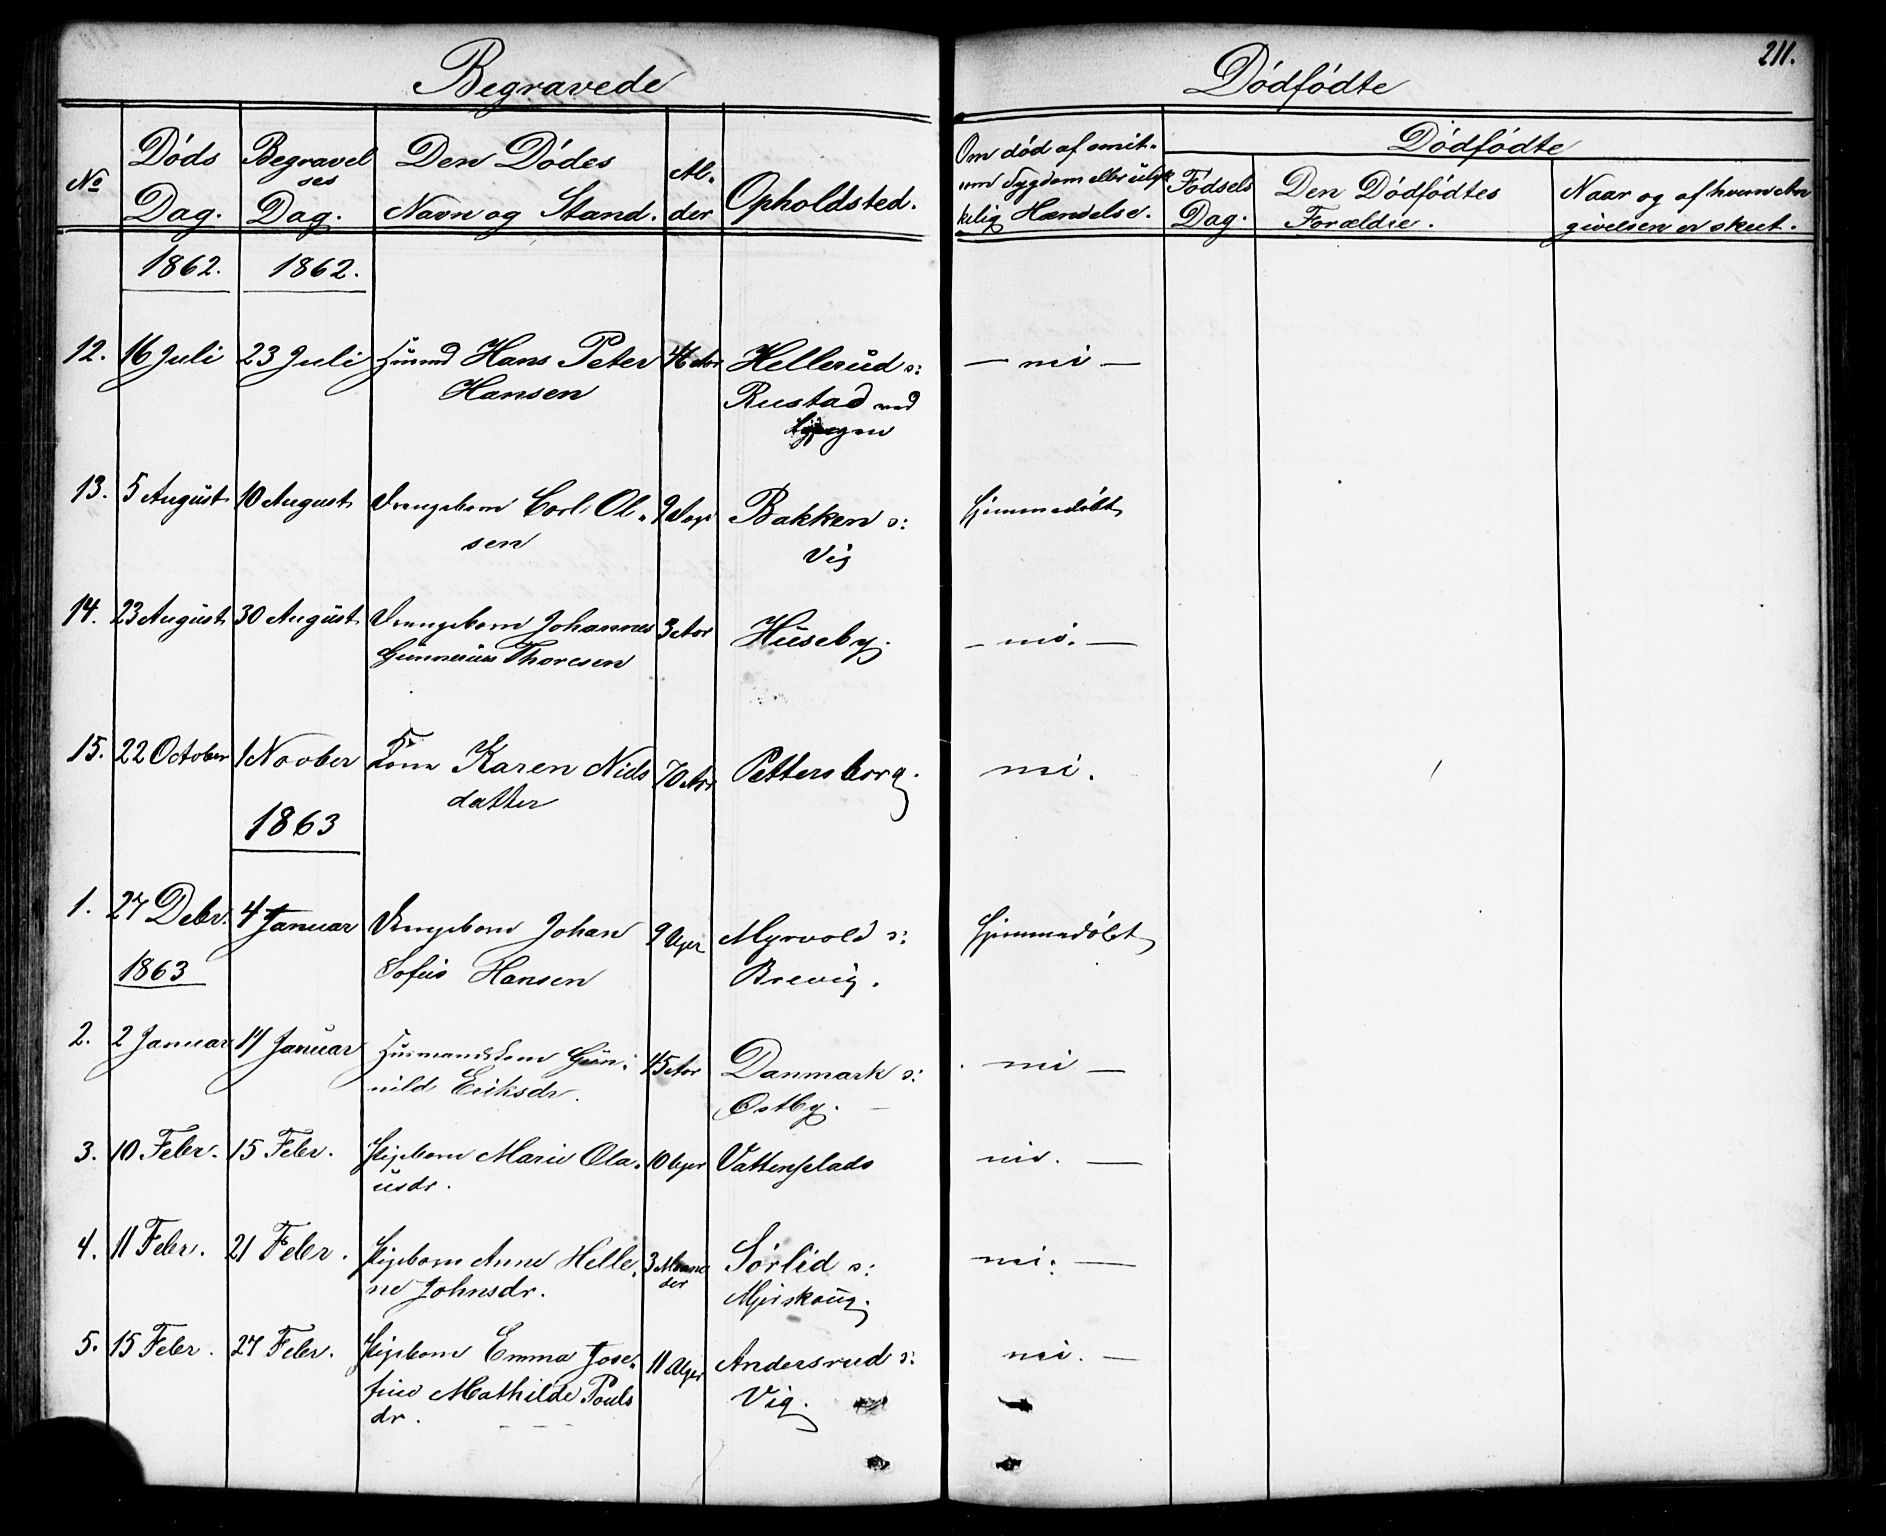 Begravede
Dødfødte
211.
No
Døds Dag.
Begravelses Dag.
Den Dødes Navn og Stand.
Alder
Opholdsted.
Om død af smitsom Sygdom eller ulykkelig Hændelse.
Dødfødte
Fødsels Dag.
Den Dødfødtes Forældre.
Naar og af hvem Angivelsen er skeet.
1862. 1862.
12. 16 Juli 23 Juli Husmd Hans Peter 46 Aar Hellerud s: — nei —
Hansen Rustad ved
13. 5 August 10 August Drengebarn Carl Ol- 9 Dage Bakken s: Hjemmedøbt
sen Vig
14. 23 August 30 August Drengebarn Johannes 3 Aar Huseby. — nei. —
Gunnerius Thoresen
15. 22 October 1 Novber Karen Niels 70 Aar Pettersborg. nei.
datter
1863
1. 27 Debr. 4 Januar Drengebarn Johan 9 Uger Myrvold s: Hjemmedøbt
1863 Sofus Hansen Brevig.
2. 2 Januar 14 Januar Husmandskone Gun- 45 Aar Danmark s: nei —
nild Eriksdr. Østby.
3. 10 Febr. 15 Febr. Pigebarn Marie Ola- 10 Uger Vattenplads nei. —
usdr.
4. 11 Febr. 21 Febr. Pigebarn Anne Helle- 3 Maane Sørlid s: nei. —
ne Johnsdr. der Mjerskoug.
5. 15 Febr. 27 Febr. Pigebarn Emma Jose- 11 Uger Andersrud s: nei. —
fine Mathilde Pouls Vig.
dr.